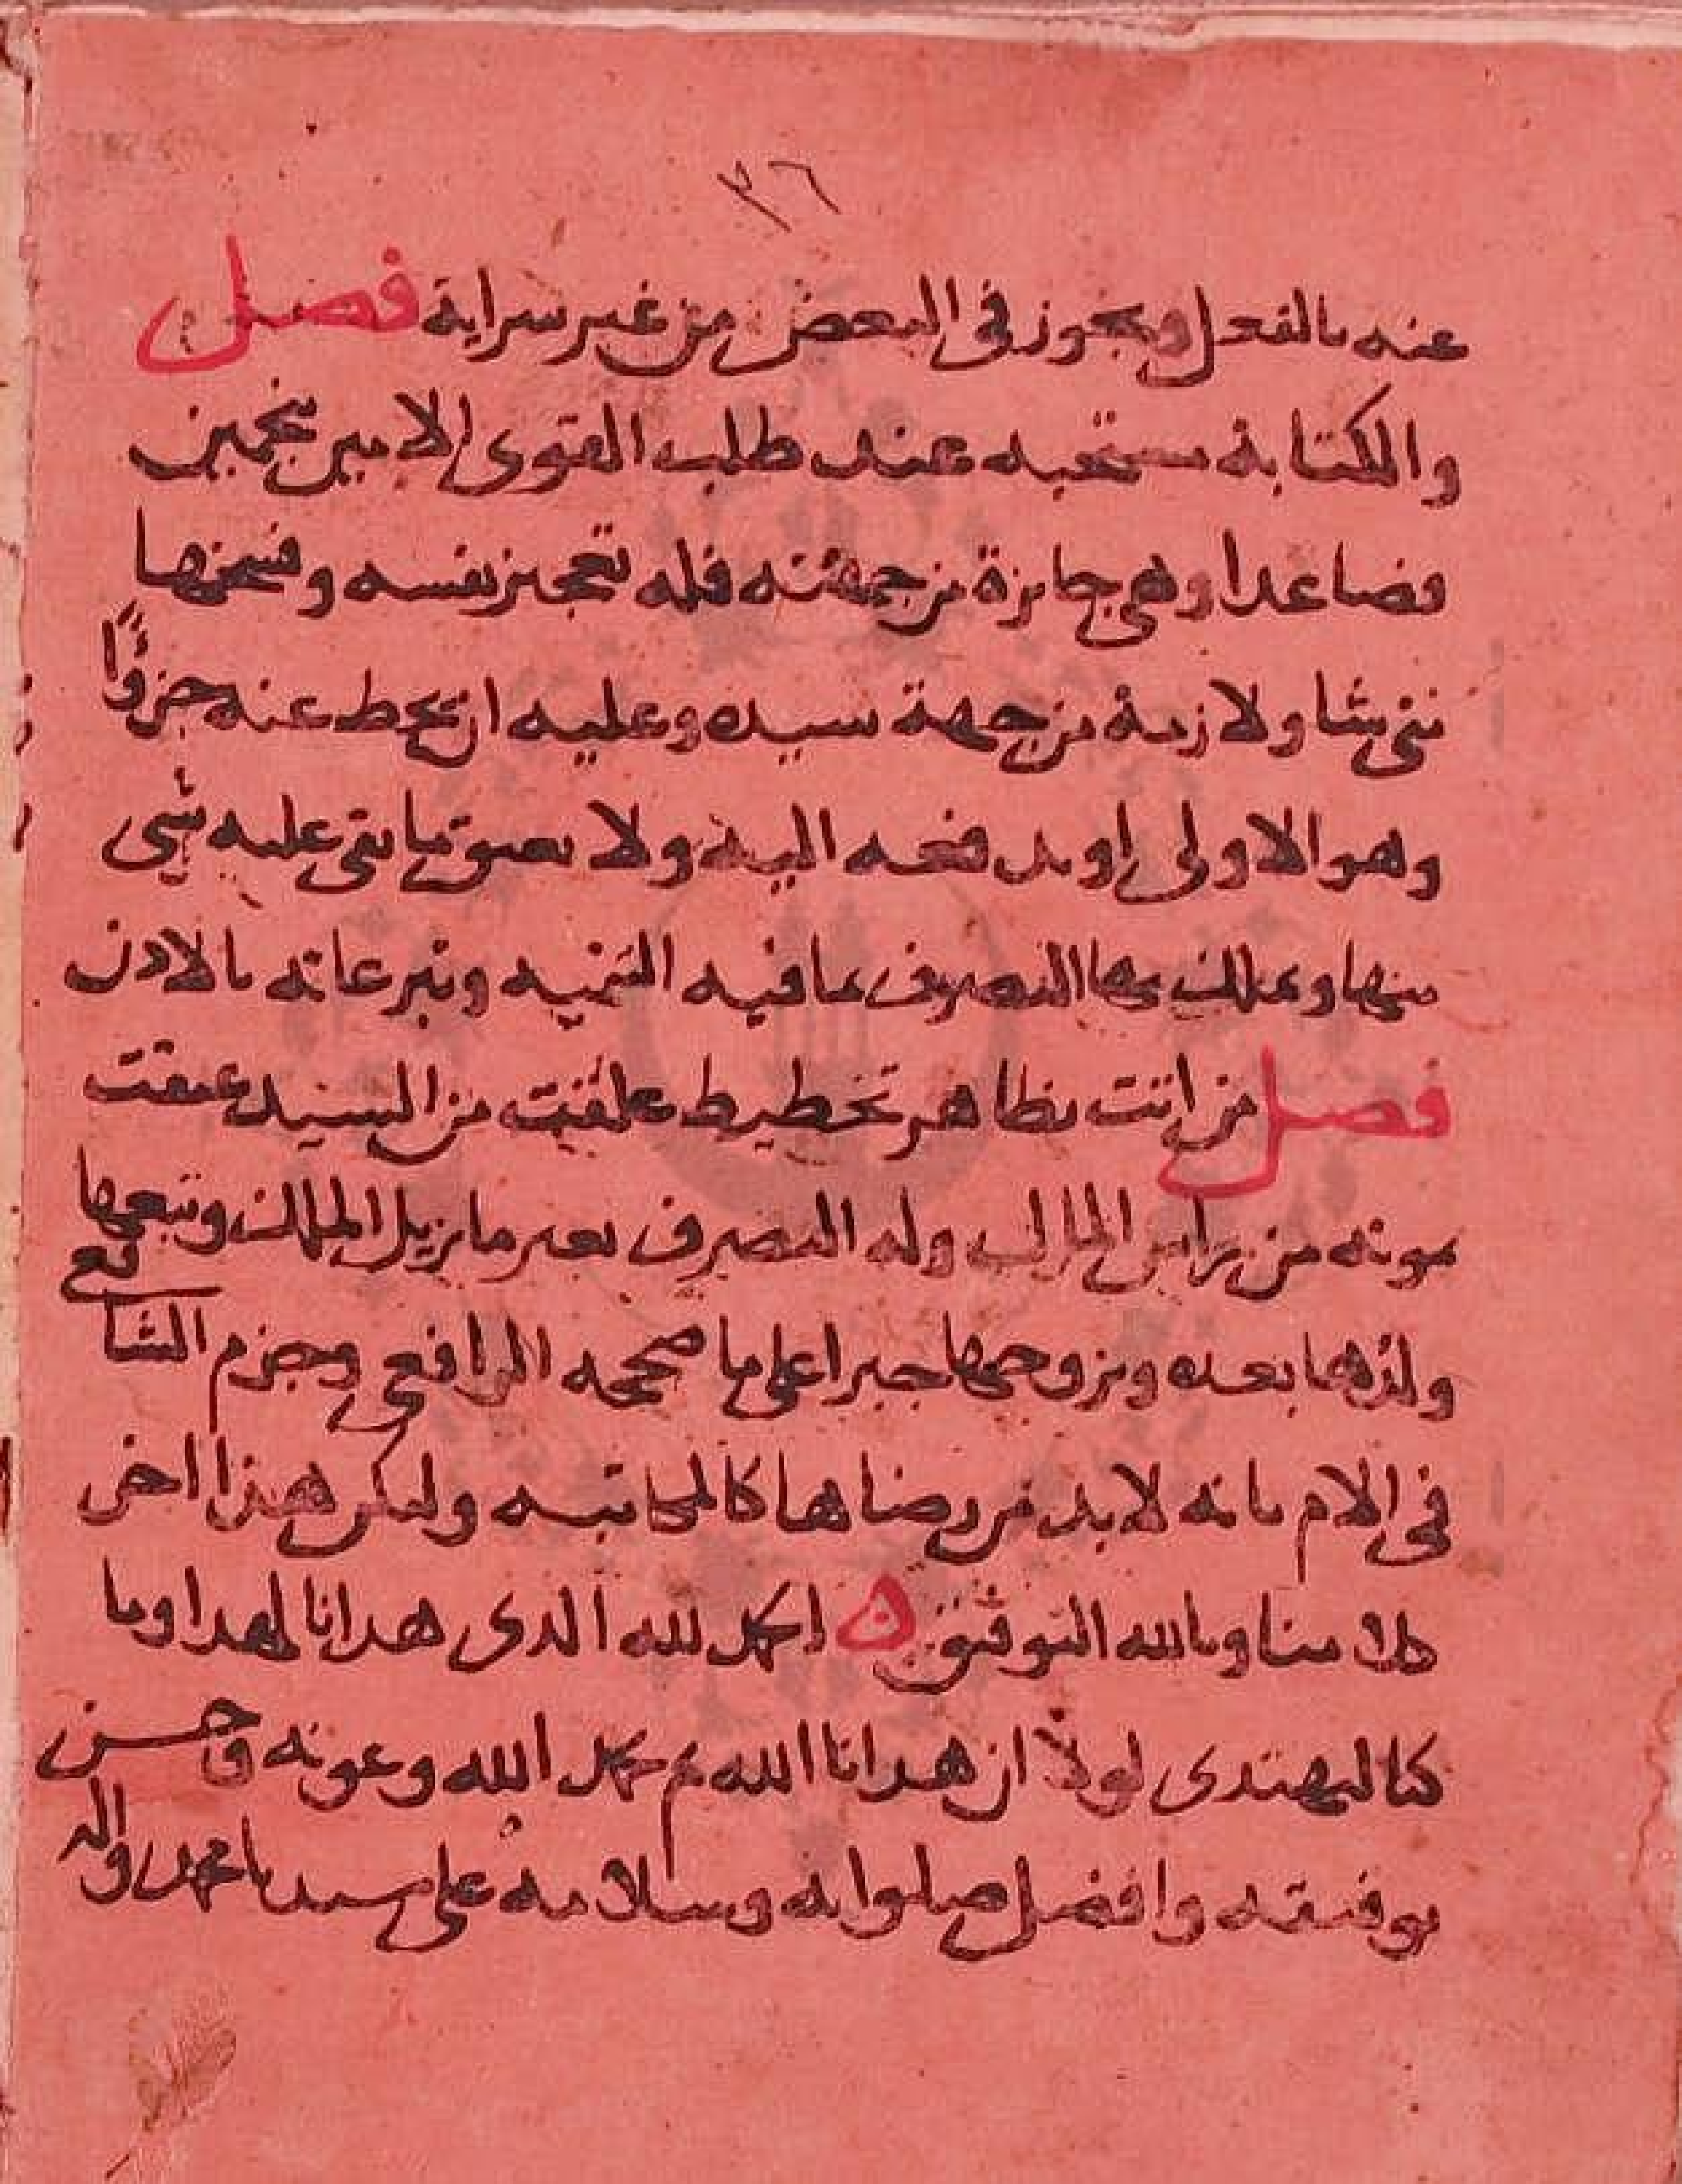 ٣٦
عنه بالفعل ويجوز في البعض من غير سراية فصل
والكتابة مستحبه عند طلب القوى الامين بنجمين
فصاعدا وهي جايزة من جهته فله تعجيز نفسه وفسخها
متى شا ولازمة من جهة سيده وعليه ان يحط عنه جزؤًا
وهو الاولى او يدفعه اليه ولا يعتق ما بقى عليه شى
منها ويملك بها التصرف بما فيه التنميه وتبرعاته بالاذن
فصل من اتت بظاهر تخطيط علقت من السيد عتقت
بموته من راس المال وله التصرف بغير ما يزيل الملك ويتبعها
ولدها بعده ويزوجها جبرا على ما صححه الرافعي وجزم الشافعي
في الام بانه لا بد من رضاها كالمكاتبه وليكن هذا اخر
كلامنا وبالله التوفيق ن الحمد لله الذى هدانا لهذا وما
كنا لنهتدى لولا ان هدانا الله تم بحمد الله وعونه وحسن
توفيقه وافضل صلواته وسلامه على سيدنا محمد واله